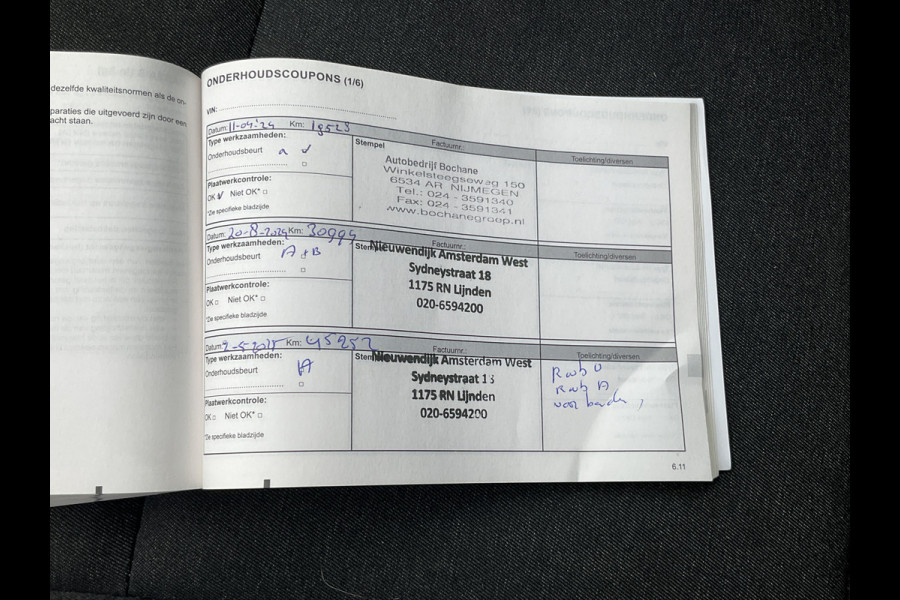 dezelfde kwaliteitsnormen als de on-
paraties die uitgevoerd zijn door een
acht staan.
ONDERHOUDSCOUPONS (1/6)
VIN:
Datum: 11-04-'24 Km: 18523
Type werkzaamheden:
Onderhoudsbeurt a ✓
Plaatwerkcontrole:
OK ✓ Niet OK* □
*De specifieke bladzijde
Stempel
Factuurnr.:
Toelichting/diversen
Autobedrijf Bochane
Winkelsteegseweg 150
6534 AR NIJMEGEN
Tel.: 024 - 3591340
Fax: 024 - 3591341
www.bochanegroep.nl
Datum: 20-8-2024 Km: 30994
Type werkzaamheden:
Onderhoudsbeurt A+B
Plaatwerkcontrole:
OK □ Niet OK* □
*De specifieke bladzijde
Factuurnr.:
Toelichting/diversen
Nieuwendijk Amsterdam West
Sydneystraat 18
1175 RN Lijnden
020-6594200
Datum: 2-5-2025 Km: 45252
Type werkzaamheden:
Onderhoudsbeurt A
Plaatwerkcontrole:
OK □ Niet OK* □
*De specifieke bladzijde
Factuurnr.:
Toelichting/diversen
Nieuwendijk Amsterdam West
Sydneystraat 18
1175 RN Lijnden
020-6594200
voor
6.11